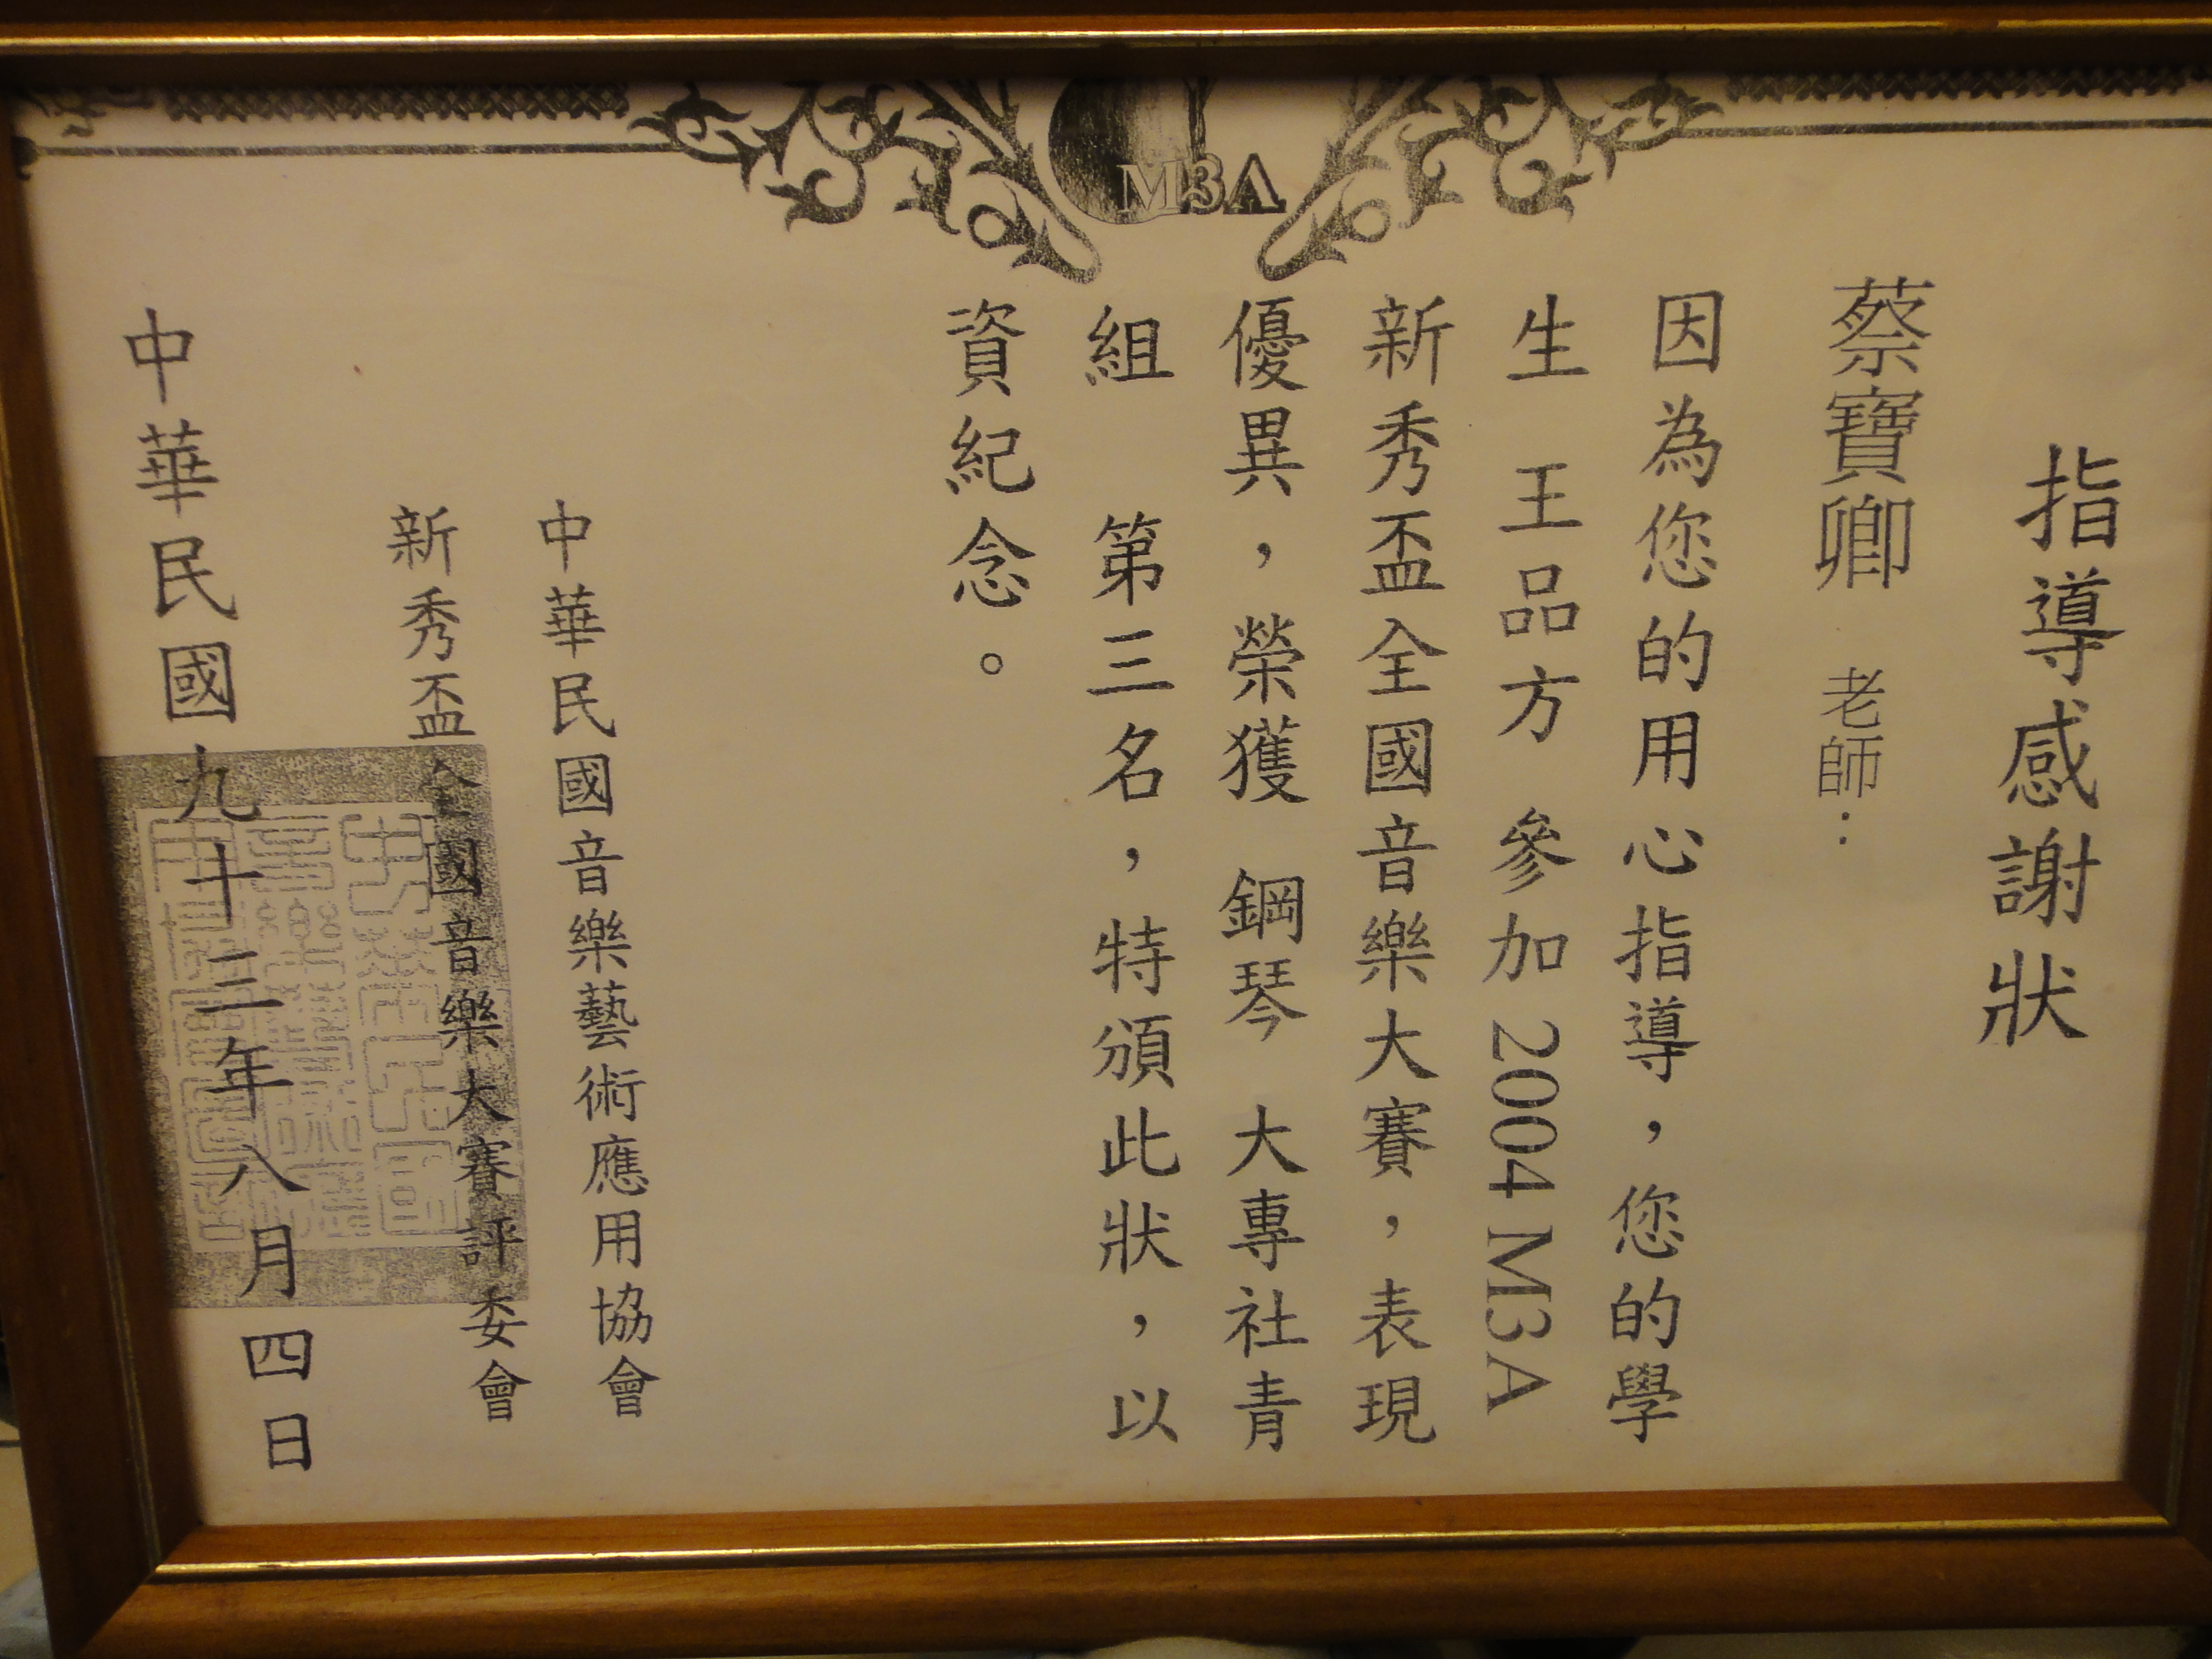 M3A
指導感謝狀
蔡寶卿 老師：
因為您的用心指導，您的學
生 王品方 參加 2004 M3A
新秀盃全國音樂大賽，表現
優異，榮獲 鋼琴 大專社青
組 第三名，特頒此狀，以
資紀念。
中華民國音樂藝術應用協會
新秀盃全國音樂大賽評委會
中華民國九十三年八月四日